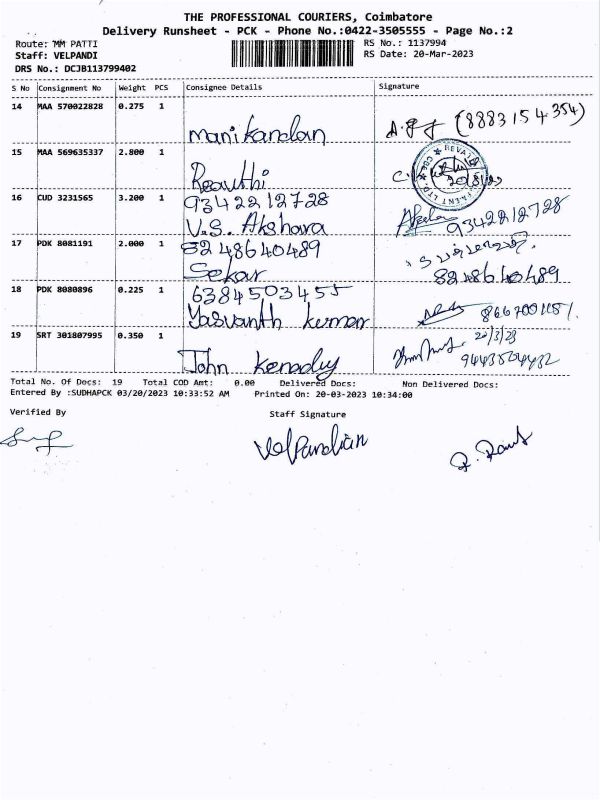 THE PROFESSIONAL COURIERS, Coimbatore
Delivery Runsheet - PCK - Phone No.:0422-3505555 - Page No.:2
Route: MM PATTI
RS No.: 1137994
Staff: VELPANDI
RS Date: 20-Mar-2023
DRS No.: DCJB113799402
S No Consignment No Weight PCS Consignee Details Signature
14 MAA 570022828 0.275 1
manikandan (8883154354)
15 MAA 569635337 2.800 1
Revathi
16 CUD 3231565 3.200 1 9342212728
V.S. Akshara 9342212728
17 PDK 8081191 2.000 1 8248640489
Sekar 8248640489
18 PDK 8080896 0.225 1 6384503455
Yasvanth kumar
19 SRT 301807995 0.350 1 20/3/23
John Kenady 9443504432
Total No. Of Docs: 19 Total COD Amt: 0.00 Delivered Docs: Non Delivered Docs:
Entered By :SUDHAPCK 03/20/2023 10:33:52 AM Printed On: 20-03-2023 10:34:00
Verified By Staff Signature
VelPandian